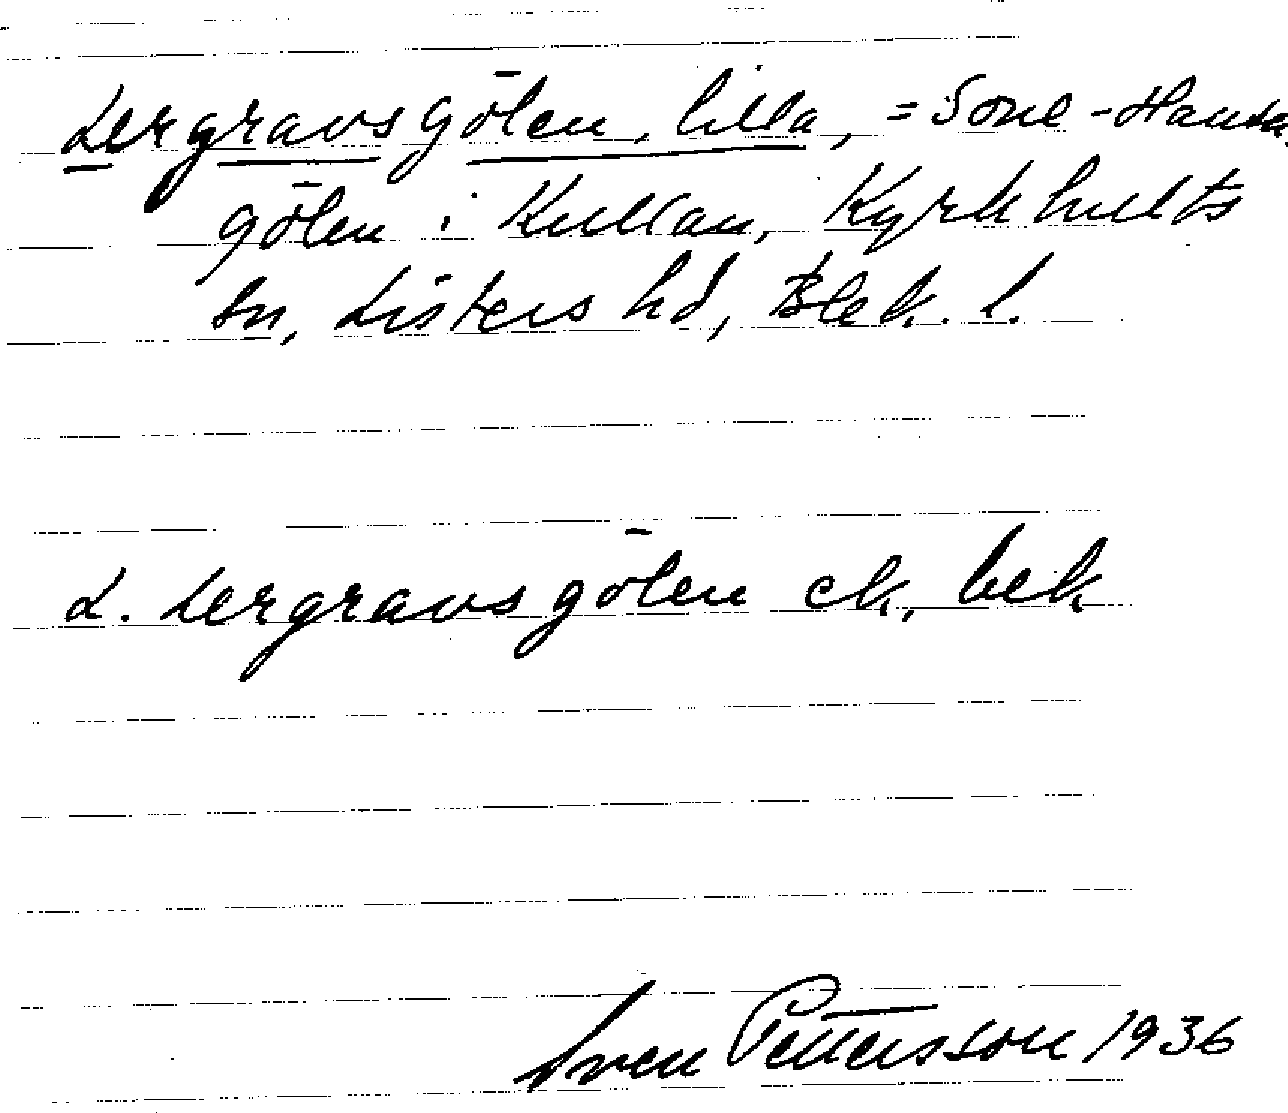 Lergravsgölen, lilla, = Sone-Handa,
gölen i Kullan, Kyrkhults
sn, Listers hd, Blek. l.
L. Lergravsgölen ek, bek
Sven Pettersson 1936